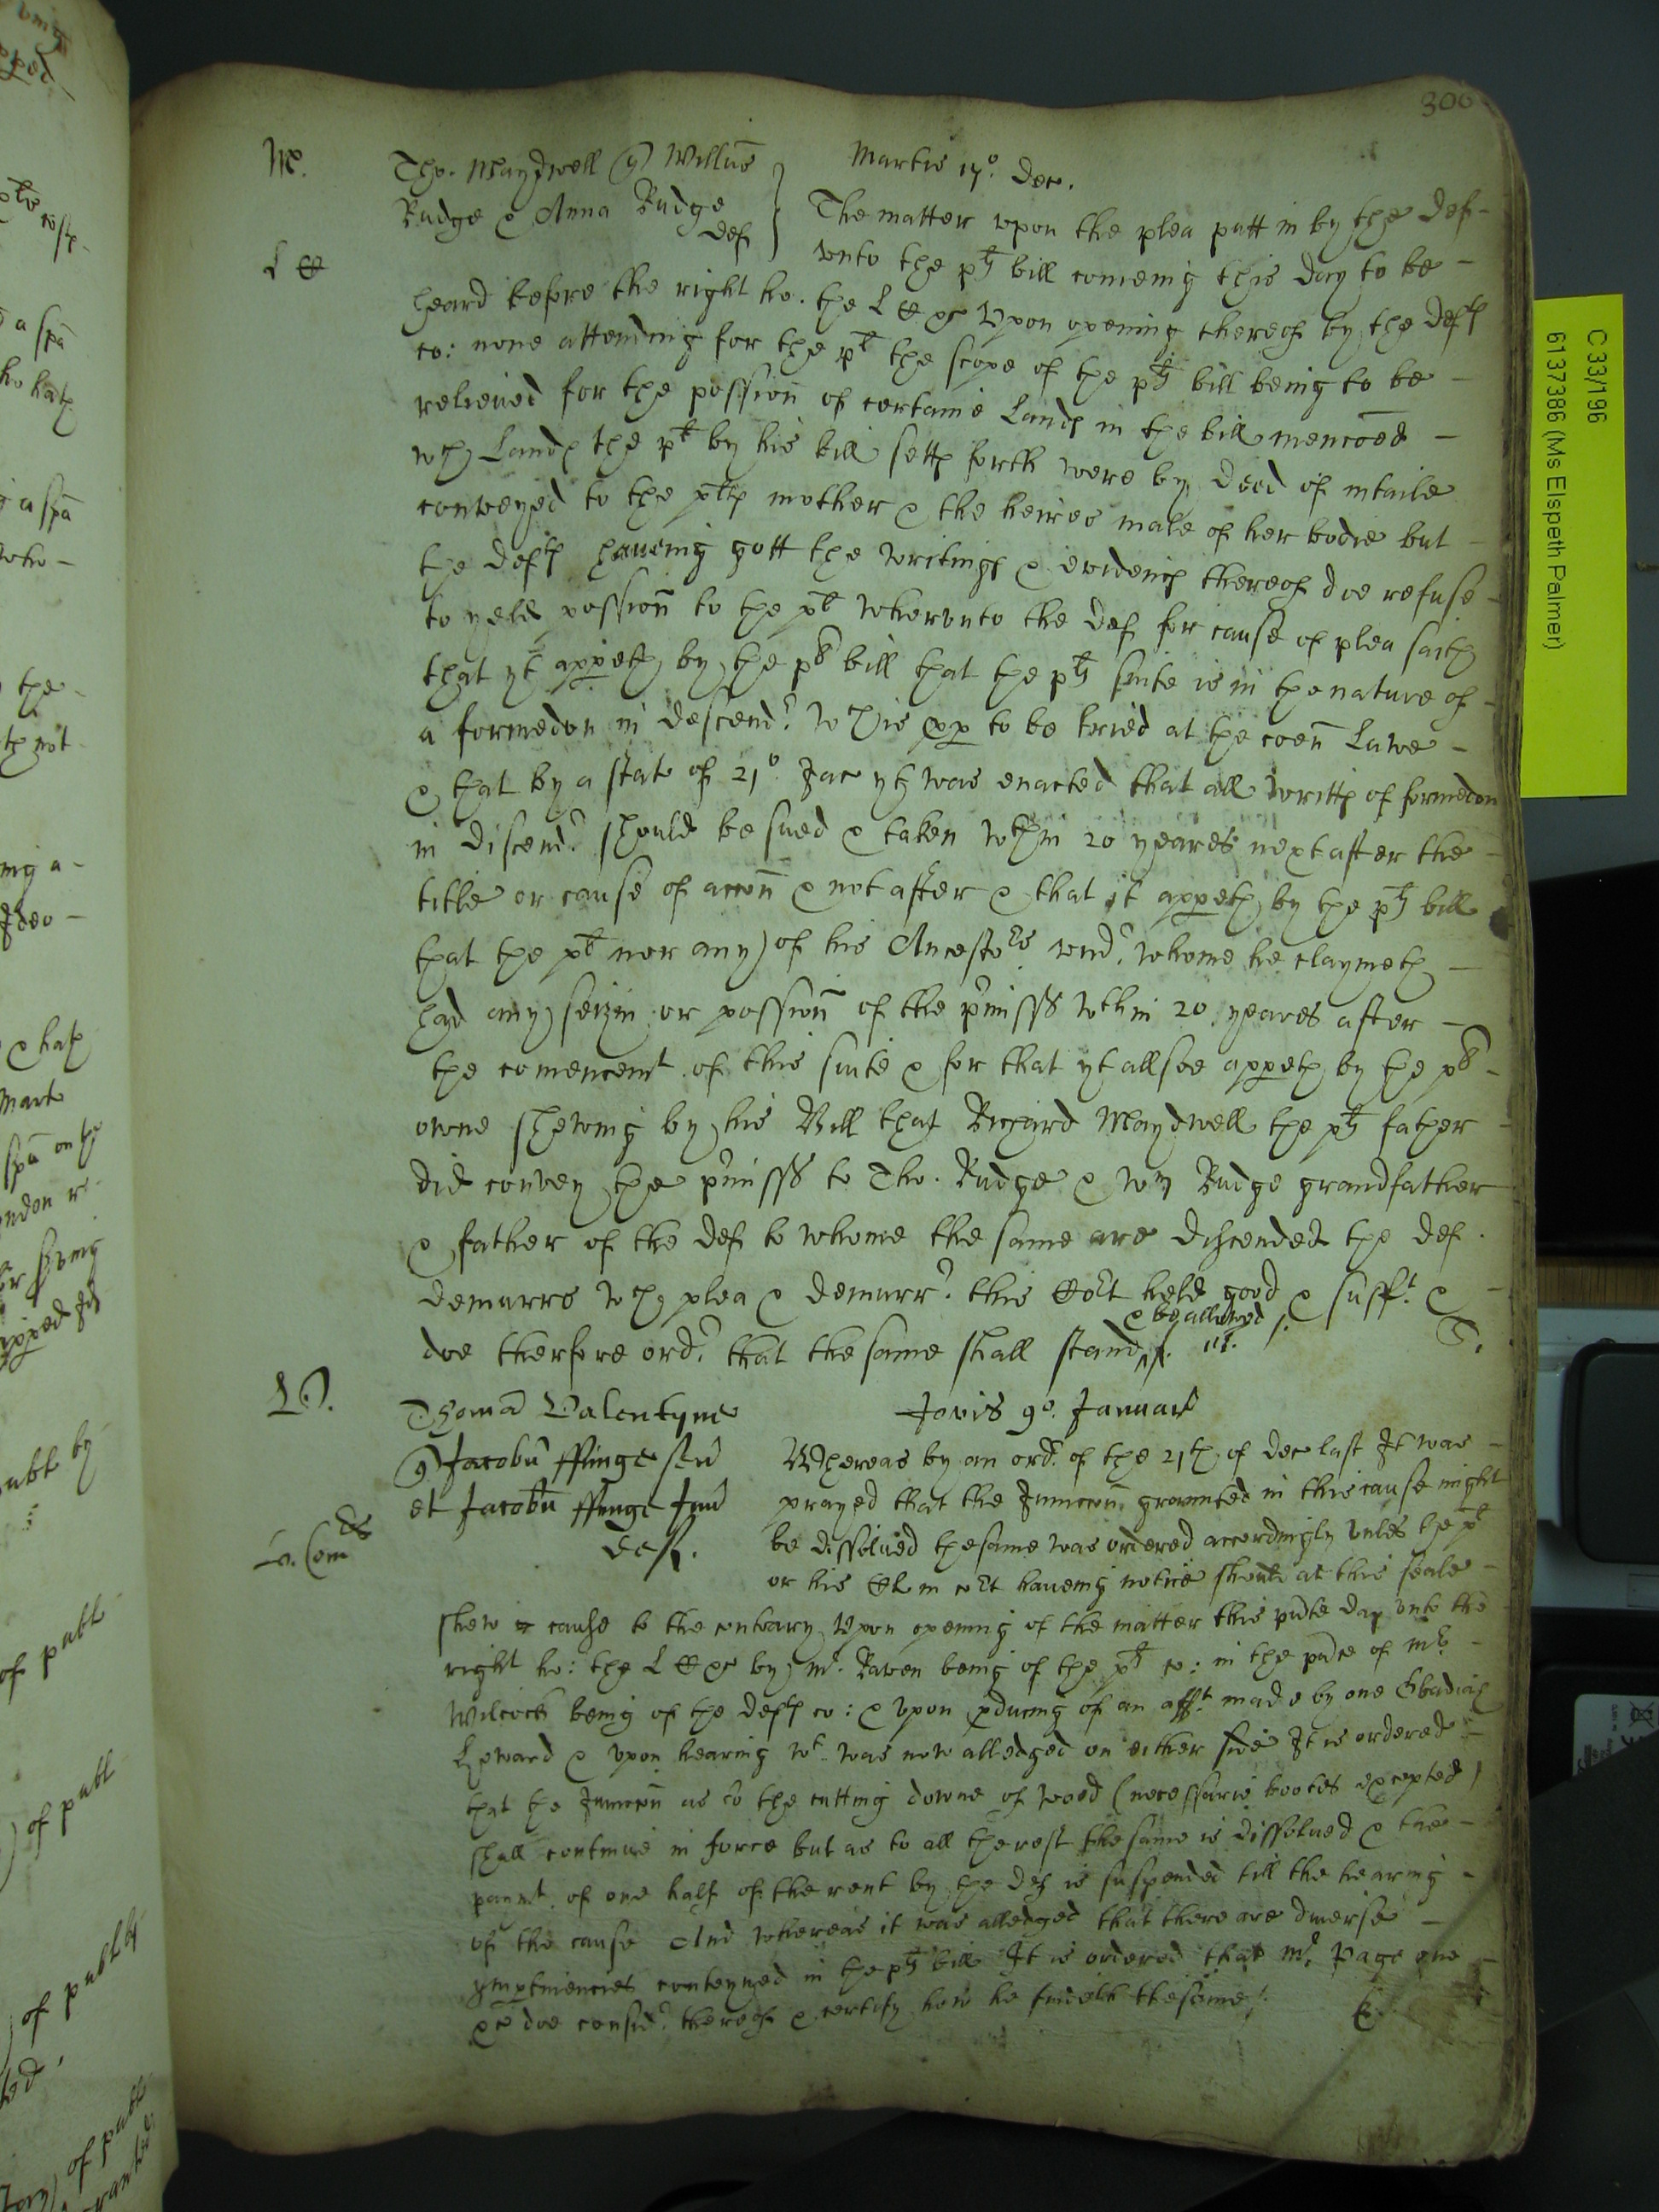 300
M.
Tho. Maydwell q) Willm̄
Budge & Anna Budge
def
Martis 17o. Dec.
L K
The matter vpon the plea putt in by the def
vnto the plts bill comeing this day to be
heard before the right ho. the L K &c Vpon opening thereof by the defts
co: none attending for the plt the scope of the plts bill being to be
relieued for the possion of certaine Lands in the bill mencōed
wch Lands the plt by his bill setth forth were by deed of intaile
conveyed to the plts mother & the heires male of her bodie but
the defts haueing gott the writings & evidencs thereof doe refuse
to yeld possion to the plt wherevnto the def for cause of plea saith
that yt appeth by the pls bill that the plts suite is in the nature of
a formedon in descend? wch is pp to be tried at the coen Lawe
& that by a stat of 21o. Jac yt was enacted that all writts of formedon
in discend? should be sued & taken wthin 20 yeares next after the
title or cause of accon & not after & that it appeth by the plts bill
that the plt nor any of his Ancestors vnd? whome he claymeth
had any seizin or possion of the pmisss wthin 20 yeares after
the comencemt of this suite & for that yt allsoe appeth by the pls
owne shewing by his Bill that Richard Maydwell the plts father
did convey the pmisss to Tho. Budge & Wm Budge grandfather
& father of the def to whome the same are discended the def
demurrs wch plea & demurr? this Co~t held good & suff~t &
& be allowed
doe therfore ord? that the same shall stand
T.
V.
Thoma Valentyne
q) Jacobu ffinge sen
et Jacobu ffinge Jun
def.
Jovis 9o. Januar
Whereas by an ord? of the 21th of dec last It was
prayed that the Iniunccon graunted in this cause might
be dissolued the same was ordered accordingly vnles the plt
or his Clk in co~t haueing notice should at this seale
shew cause to the contrary Vpon opening of the matter this pnte day vnto the
right ho: the L K &c by mr. Raven being of the plts co: in the pnce of mr
Wilcock being of the defts co: & vpon pducing of an afft. made by one Obadiah
Leward & vpon hearing wt was now alledged on either side It is ordered
that the Iniunccon as to the cutting downe of wood (necessarie bootes excepted)
shall continue in force but as to all the rest the same is dissolued & the
paymt of one half of the rent by the def is suspended till the hearing
of the cause And whereas it was alledged that there are diuerse
ymptinencies conteyned in the plts bill It is ordered that mr Page one
&c doe consid? thereof & certify how he findeth the same
C 33/196
6137386 (Ms Elspeth Palmer)